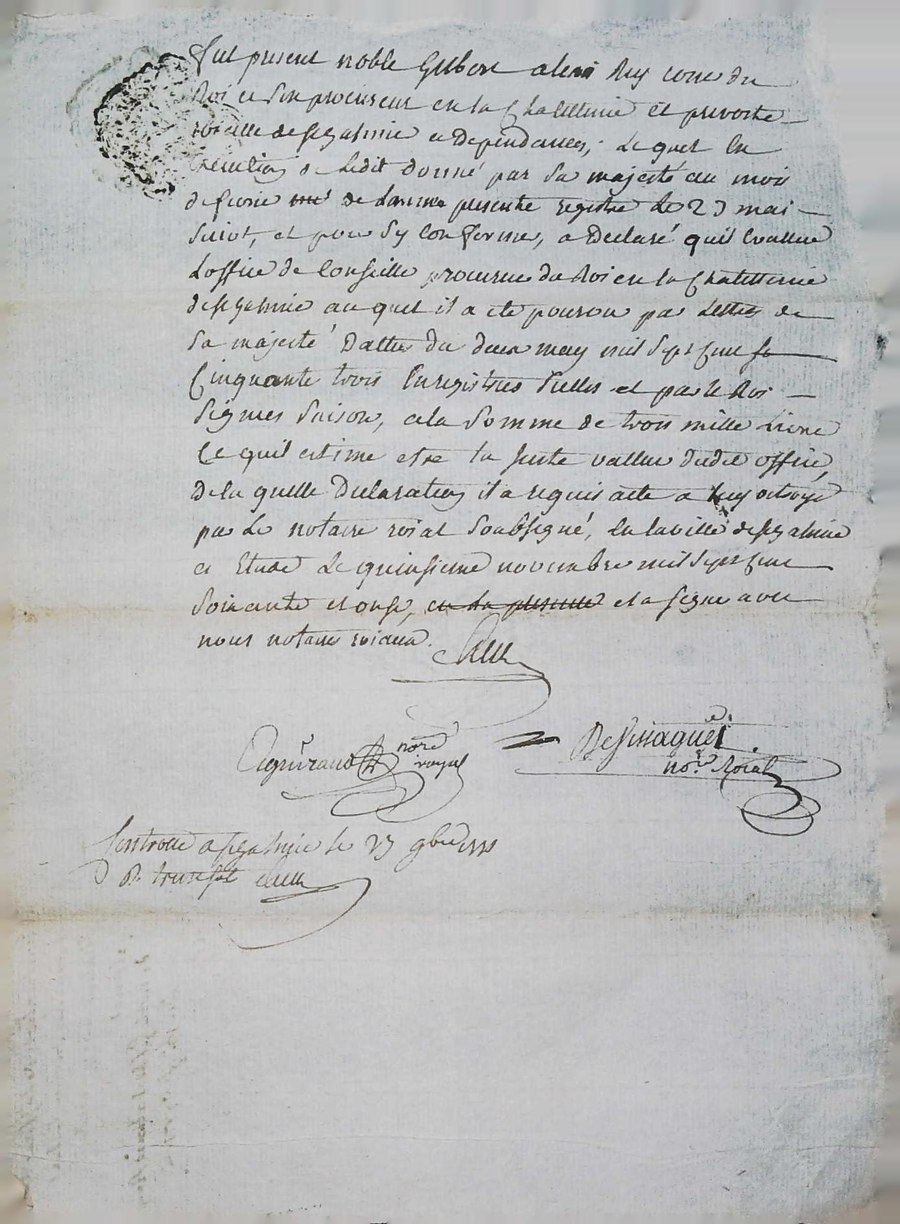 fut present noble Gilbert alexi Rey conr du
Roi et son procureur en la Chatellenie et prevoté
roialle de Segalmie et Dependances, Lequel en
execution de Ledit donné par sa majesté au mois
de fevrier de Lannee presente registré le 23 mai
suivt, et pour sy conformer, a Declaré quil Evallue
Loffice de Conseille procureur du Roi en la Chatellenie
de auquel il a eté pourvu par Lettres de
Sa majesté Datte du deux may mil sept cent
Cinquante trois Enregistrés icelles et par le Roi
Signés Suison, a la Somme de trois mille Livre
Ce quil estime etre la juste vallue dudit office,
de la quelle Declaration il a requis acte a luy octroyé
par Le notaire roial Soubsigné, en la ville de
et Etude Le quinsieme novembre mil sept cent
Soixante et onse, en la presente et a signé avec
nous notaire roiaux.
nore
royal
nore. Roial
Controllé a le 27 9bre 1771